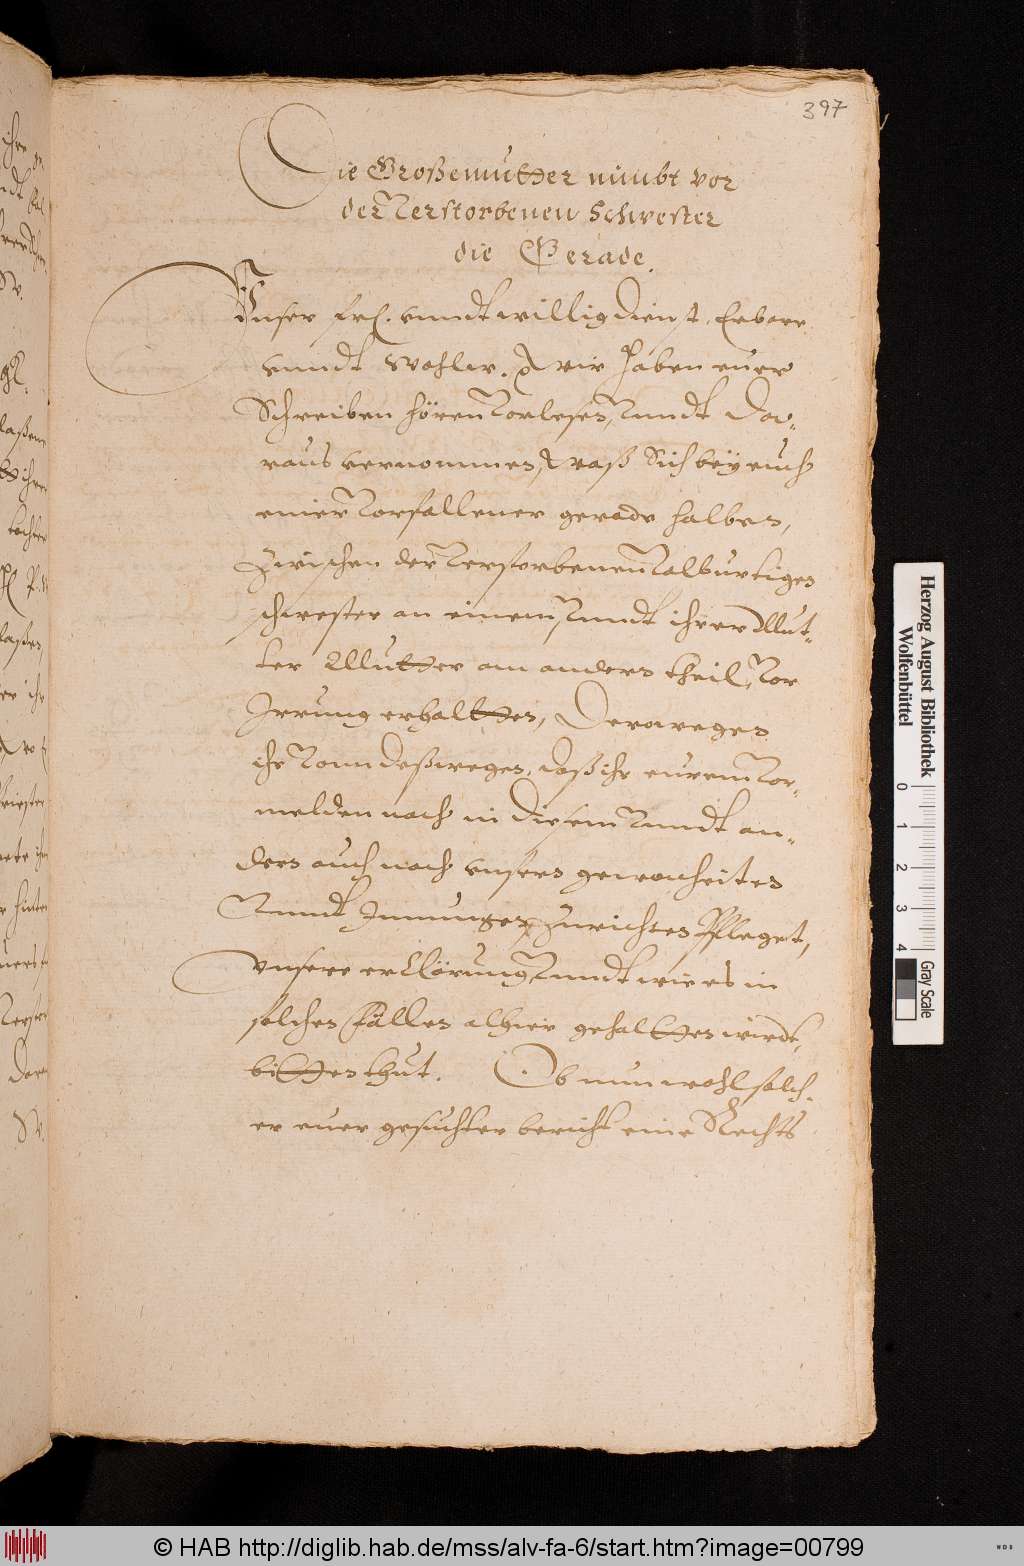 397
Die Großemutter nimbt vor
der Verstorbenen Schwester
die Gerade.
Unser frl. vnndt willig dienst, Erbare
vnndt Wohlw. wir haben euer
Schreiben hören Vorlesen, Vnndt dar-
raus vernommen, waß Sich bey euch
einer Vorfallener gerade halben,
Zwischen der Verstorbenen Valburtigen
schwester an einem, Vnndt ihrer Mut-
ter Mutter am andern theil, Vor
Irrung erhalten, Deroweges
ihr Vonn deßwegen, daß ihr eurem Vor-
melden nach in diesem Vnndt an-
dern auch nach vnsern gewonheiten
Vnndt Innungen zurichten Pfleget,
vnsere erklörung Vnndt wie es in
solchen Fällen alhier gehalten würdt,
bitten thut. Ob nun wohl solch-
er euer gesuchter bericht eine Rechts
Herzog August Bibliothek
Wolfenbüttel
0 1 2 3 4
Gray Scale
© HAB http://diglib.hab.de/mss/alv-fa-6/start.htm?image=00799